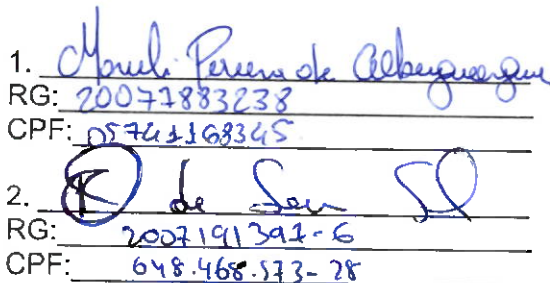 1. Pereira de Albuquerque
RG: 20077883238
CPF: 05741168345
2. de
RG: 2007191391-6
CPF: 648.468.573-28